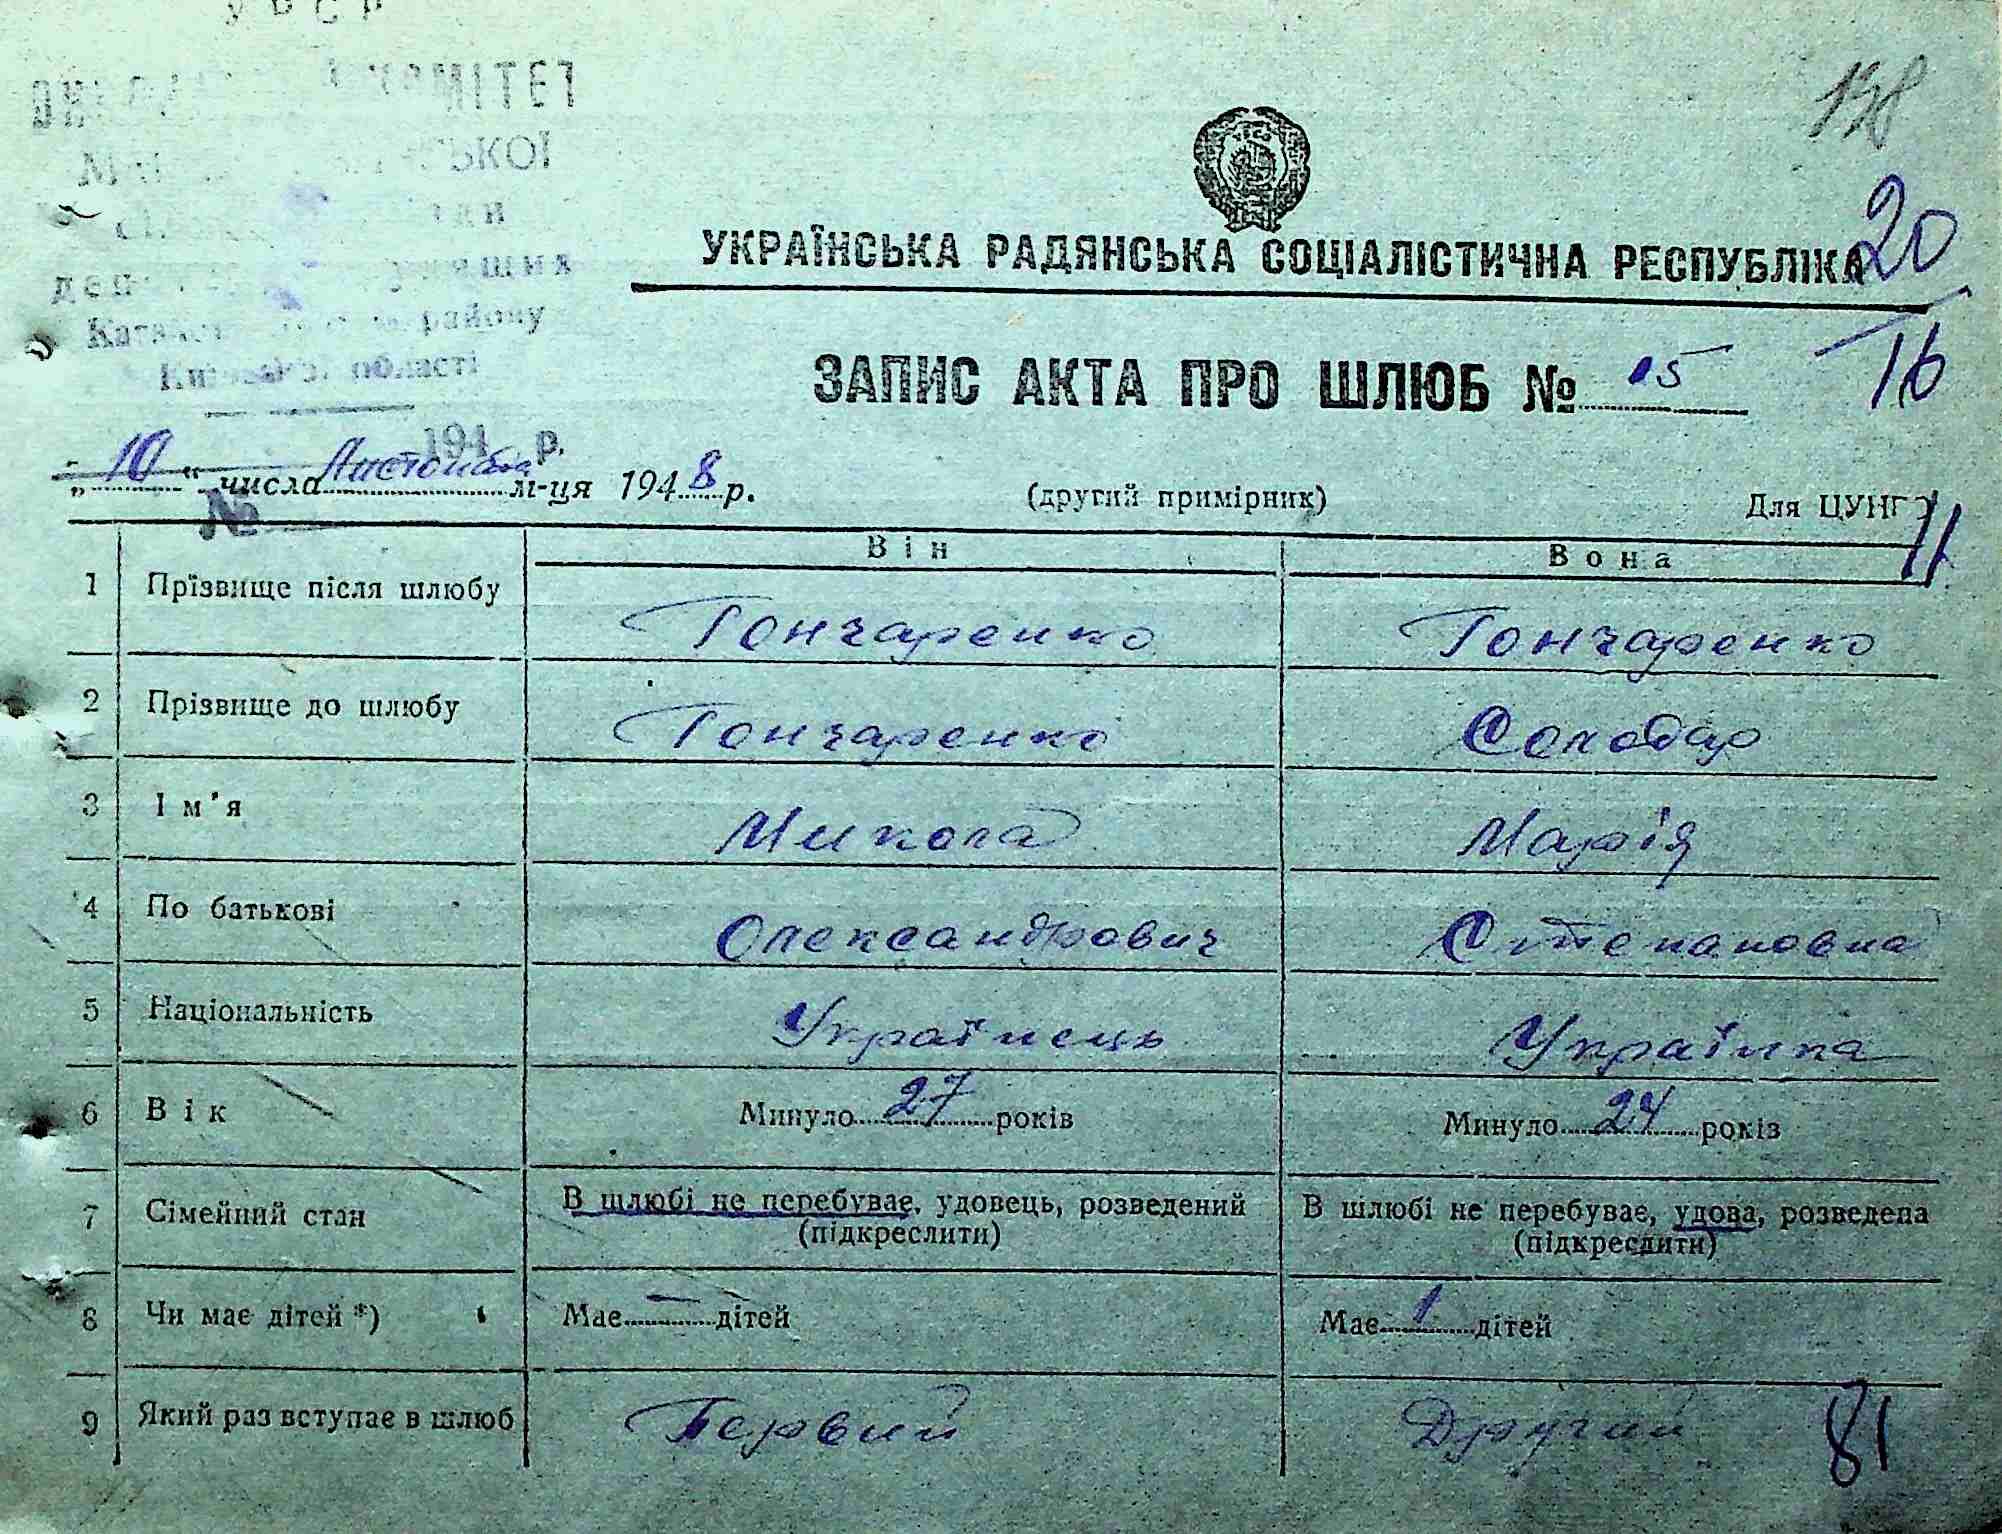 УРСР
КОМІТЕТ
району
Київської області
194 р.
№
198
20
16
УКРАЇНСЬКА РАДЯНСЬКА СОЦІАЛІСТИЧНА РЕСПУБЛІКА
ЗАПИС АКТА ПРО ШЛЮБ № 15
„ 10 “ числа Листопада м-ця 1948 р.
(другий примірник)
Для ЦУНГО
11
Він Вона
1 Прізвище після шлюбу Гончаренко Гончаренко
2 Прізвище до шлюбу Гончаренко Солодар
3 Ім'я Микола Марія
4 По батькові Олександрович Степановна
5 Національність Українець Українка
6 Вік Минуло 27 років Минуло 24 років
7 Сімейний стан В шлюбі не перебуває, удовець, розведений В шлюбі не перебуває, удова, розведена
(підкреслити) (підкреслити)
8 Чи має дітей *) Має — дітей Має 1 дітей
9 Який раз вступає в шлюб Первий Другий
81